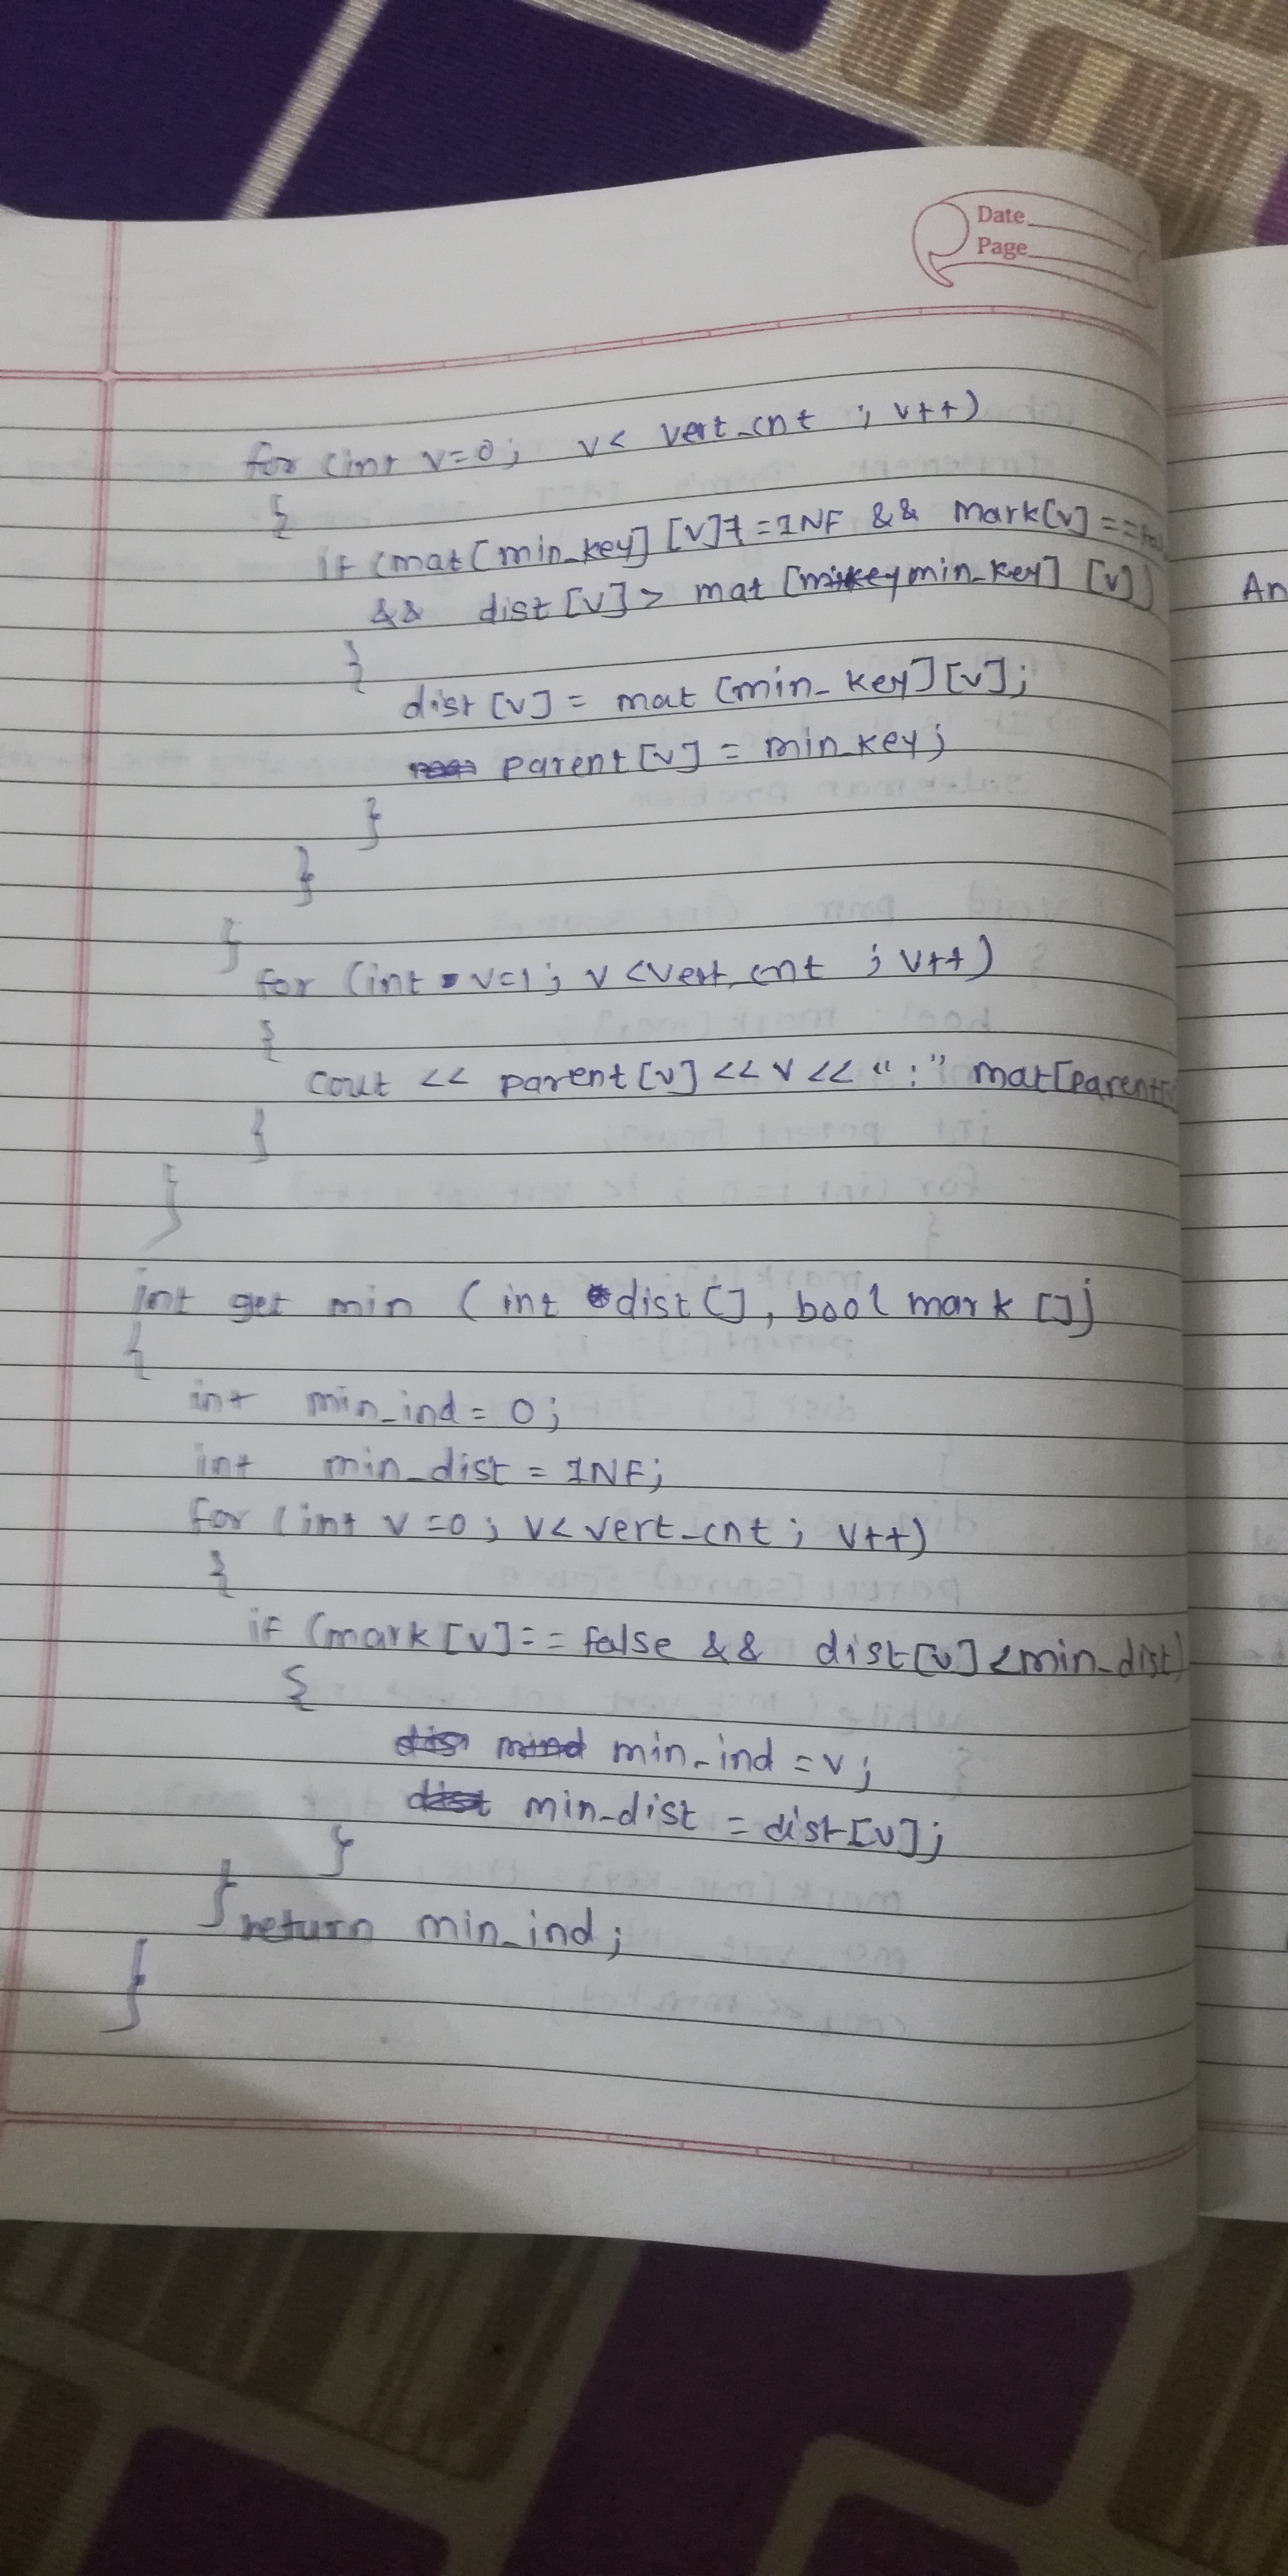 Date
Page
for (int v=0; v< vert_cnt ; v++)
{
if (mat[min_key][v]!=INF && mark[v]==
&& dist[v]> mat [min_key][v])
{
dist[v]= mat [min_key][v];
parent[v] = min_key;
}
}
}
for (int v=1; v<vert_cnt ; v++)
{
cout << parent[v]<<v<< ":" mat[parent[
}
}
int get min (int dist[], bool mark [])
{
int min_ind= 0;
int min_dist = INF;
for (int v=0; v<vert_cnt; v++)
{
if (mark[v]==false && dist[v]<min_dist)
{
min_ind =v;
min_dist = dist[v];
}
}return min_ind;
}
An